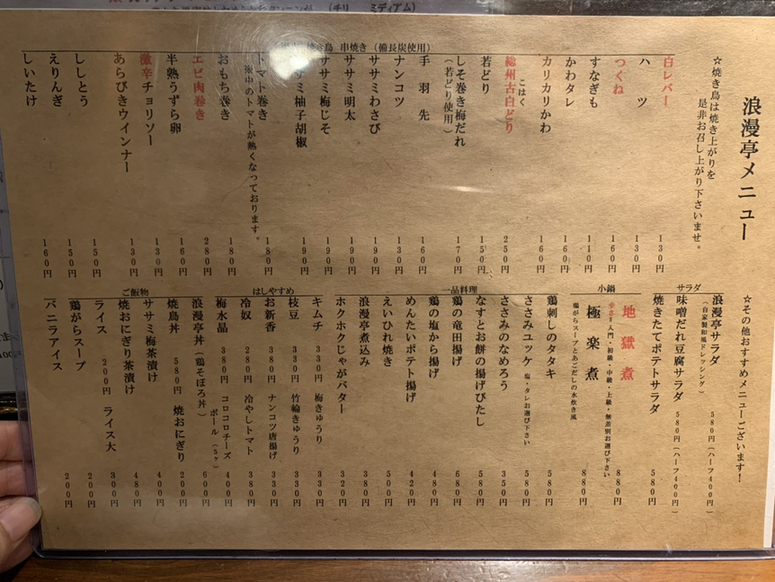 浪漫亭メニュー
☆焼き鳥は焼き上がりを
是非お召し上がり下さいませ。
串焼き（備長炭使用）
白レバー 130円
ハツ 130円
つくね 160円
すなぎも 110円
かわタレ 160円
カリカリかわ 160円
総州古白どり 250円
こはく
若どり 150円
しそ巻き梅だれ 170円
（若どり使用）
手羽先 160円
ナンコツ 130円
ササミわさび 190円
ササミ明太 190円
ササミ梅じそ 190円
サミ柚子胡椒 190円
トマト巻き 180円
中のトマトが熱くなっております。
おもち巻き 180円
エビ肉巻き 280円
半熟うずら卵 160円
激辛チョリソー 130円
あらびきウインナー 130円
ししとう 150円
えりんぎ 150円
しいたけ 160円
☆その他おすすめメニューございます！
サラダ
浪漫亭サラダ 580円（ハーフ400円）
（自家製和風ドレッシング）
味噌だれ豆腐サラダ 580円（ハーフ400円）
焼きたてポテトサラダ 580円
小鍋
地獄煮 880円
辛さ 入門・初級・中級・上級・無差別お選び下さい
極楽煮 880円
鶏がらスープとあごだしの水炊き風
一品料理
鶏刺しのタタキ 580円
ささみユッケ 塩・タレお選び下さい 580円
ささみのなめろう 350円
なすとお餅の揚げびたし 580円
鶏の竜田揚げ 680円
鶏の塩から揚げ 480円
めんたいポテト揚げ 420円
えいひれ焼き 500円
浪漫亭煮込み 380円
ホクホクじゃがバター 320円
はしやすめ
キムチ 330円 梅きゅうり 330円
枝豆 330円 竹輪きゅうり 330円
お新香 330円 ナンコツ唐揚げ 420円
冷奴 380円 冷やしトマト 380円
梅水晶 380円 コロコロチーズボール（5ヶ） 400円
ご飯物
浪漫亭丼（鶏そぼろ丼） 600円
焼鳥丼 580円 焼おにぎり 200円
ササミ梅茶漬け 400円
焼おにぎり茶漬け 480円
ライス 200円 ライス大 300円
鶏がらスープ 200円
バニラアイス 200円